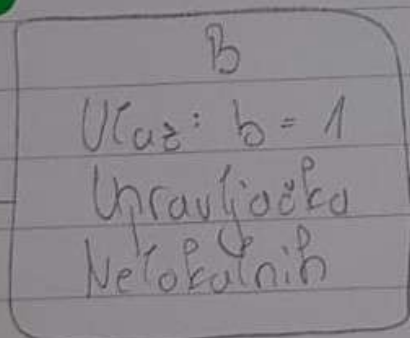 B
Ulaz: b = 1
Upravljačka
Nelokalnih